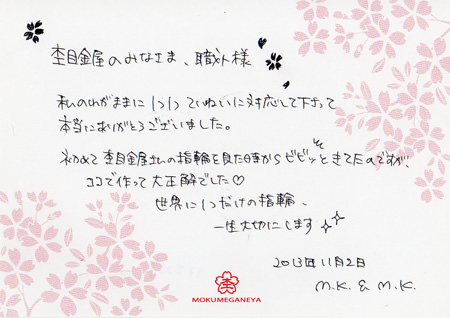 杢目金屋のみなさま、職人様
私のわがままに1つ1つていねいに対応して下さって
本当にありがとうございました。
初めて杢目金屋さんの指輪を見た時からビビッときてたのですが、
ココで作って大正解でした♡
世界に1つだけの指輪、
一生大切にします
2013年11月2日
M.K. & M.K.
MOKUMEGANEYA